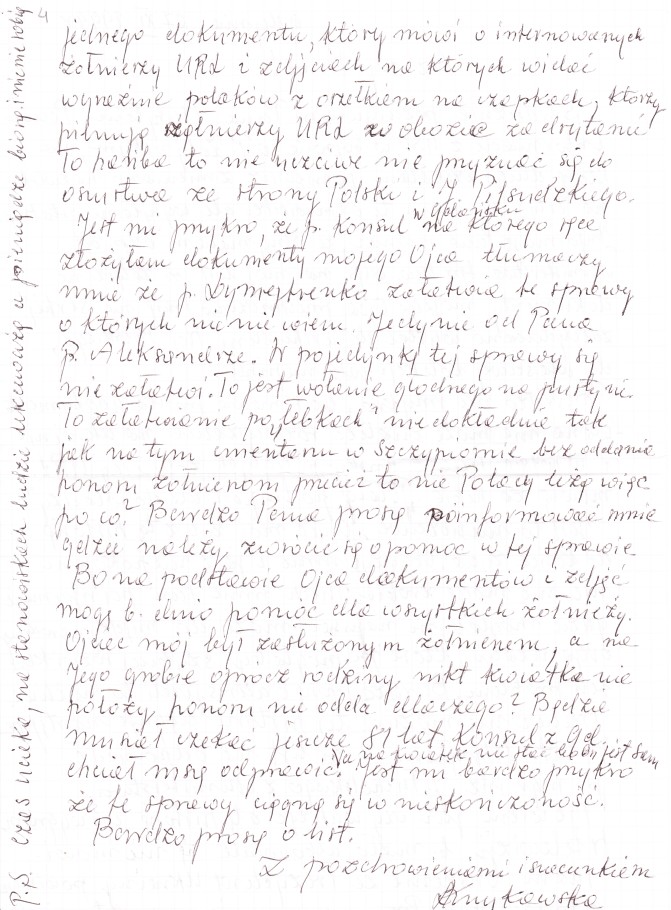 4
jednego dokumentu, który mówi o internowanych
żołnierzy URL i zdjęciach na których widać
wyraźnie polaków z orzełkiem na czapkach, którzy
pilnują żołnierzy URL w obozie za drutami
To hańba to nie uczciwe nie przyznać się do
oszustwa ze strony Polski i J. Piłsudzkiego.
Jest mi przykro, że p. Konsul w Gdańsku na którego ręce
złożyłam dokumenty mojego Ojca tłumaczy
mnie że p. załatwia te sprawy
o których nic nie wiem. Jedynie od Pana
p. Aleksandrze. W pojedynkę tej sprawy się
nie załatwi. To jest wołanie głodnego na pustyni.
To załatwianie po „łebkach" niedokładnie tak
jak na tym cmentarzu w Szczypiornie bez oddania
honoru żołnierzom przecież to nie Polacy leżą więc
po co? Bardzo Pana proszę poinformować mnie
gdzie należy zwrócić się o pomoc w tej sprawie
Bo na podstawie Ojca dokumentów i zdjęć
mogę b. dużo pomóc dla wszystkich żołnieży.
Ojciec mój był zasłużonym żołnierzem, a na
Jego grobie oprócz rodziny nikt kwiatka nie
położy honoru nie odda dlaczego? Będzie
musiał czekać jeszcze 81 lat. Konsul z Gd.
chciał mszę odprawić. Na nie stać abym jest sam
Jest mi bardzo przykro
że te sprawy ciągną się w nieskończoność.
Bardzo proszę o list.
Z pozdrowieniami i szacunkiem
P.S. Czas ucieka, na stanowiskach ludzie lekceważą a pieniądze biorą i nic nie robią